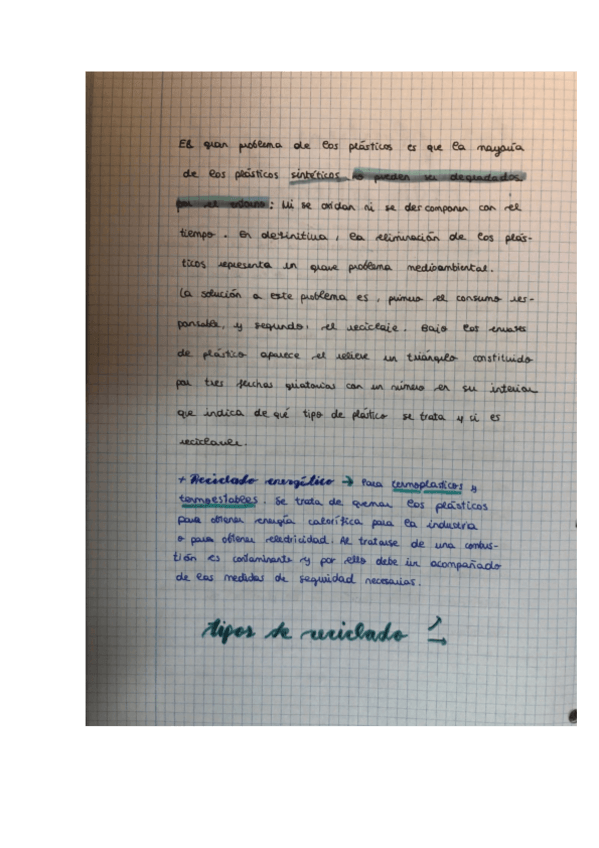 El gran problema de los plásticos es que la mayoría
de los plásticos sintéticos no pueden ser degradados
por el entorno: Ni se oxidan ni se descomponen con el
tiempo. En definitiva, la eliminación de los plás-
ticos representa un grave problema medioambiental.
La solución a este problema es, primero el consumo res-
ponsable, y segundo, el reciclaje. Bajo los envases
de plástico aparece el relieve un triángulo constituido
por tres flechas giratorias con un número en su interior
que indica de qué tipo de plástico se trata y si es
reciclable.
+ Reciclado energético → Para termoplasticos y
termoestables. Se trata de quemar los plásticos
para obtener energía calorífica para la industria
o para obtener electricidad. Al tratarse de una combus-
tión es contaminante y por ello debe ir acompañado
de las medidas de seguridad necesarias.
tipos de reciclado